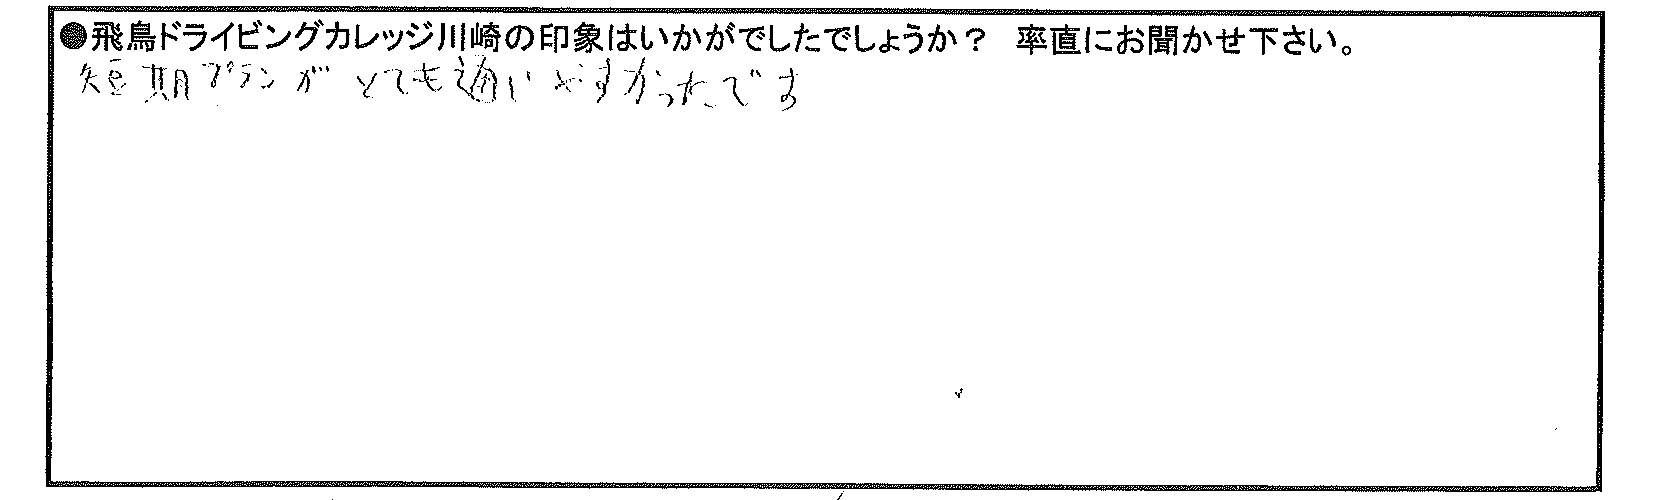 ●飛鳥ドライビングカレッジ川崎の印象はいかがでしたでしょうか？ 率直にお聞かせ下さい。
短期プランがとても通いやすかったです